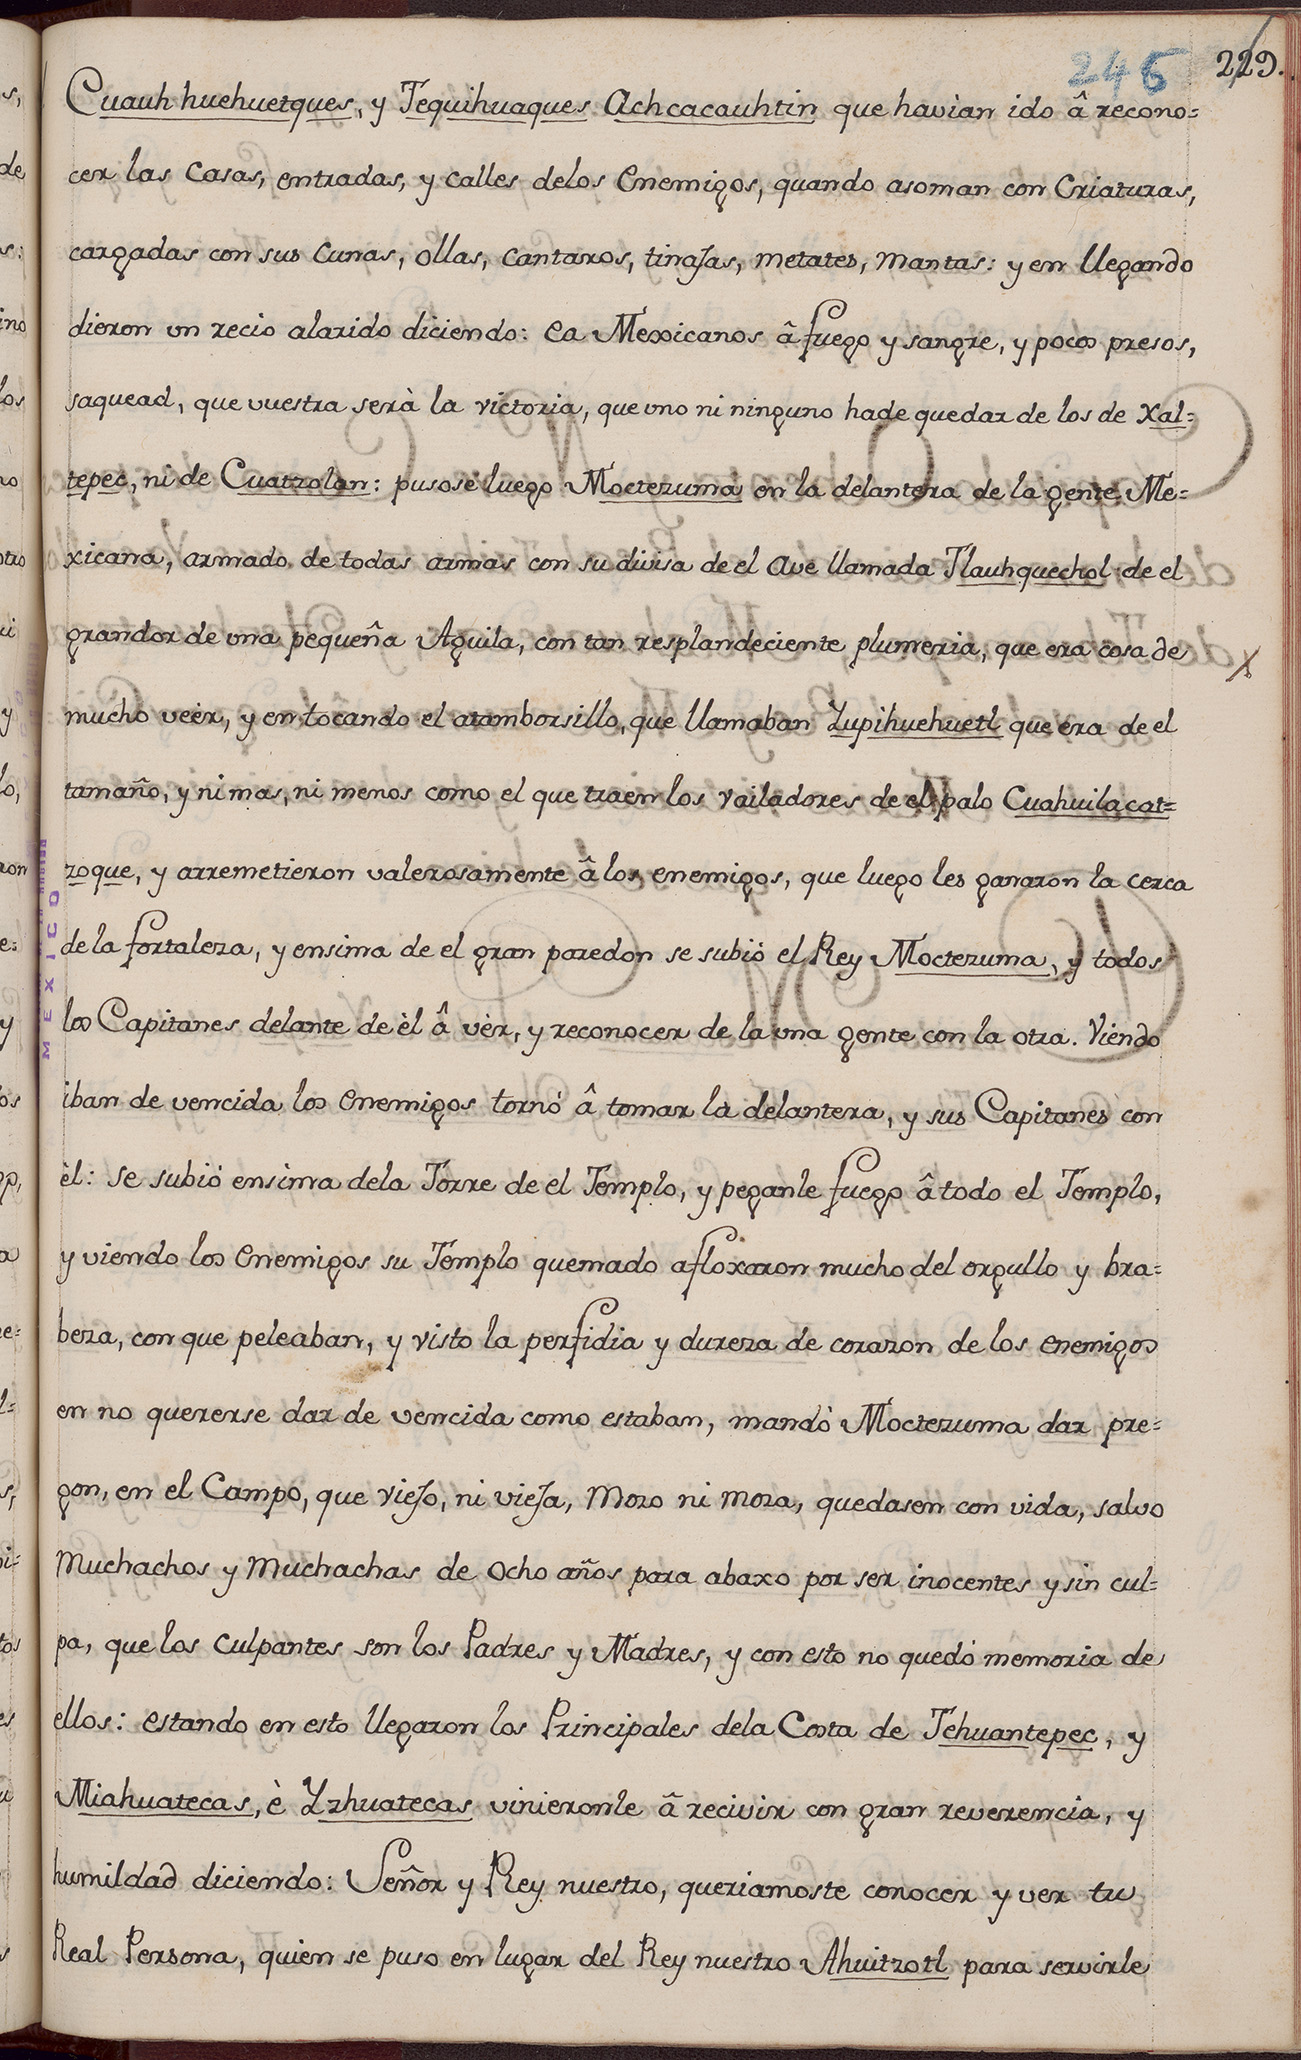 246 229.
Cuauh huehuetques, y Tequihuaques Achcacauhtin que havian ido â recono=
cer las Casas, entradas, y calles delos Enemigos, quando asoman con Criaturas,
cargadas con sus Cunas, ollas, cantaros, tinajas, metates, mantas: y en llegando
dieron un recio alarido diciendo: ea Mexicanos â fuego y sangre, y pocos presos,
saquead, que vuestra serà la victoria, que uno ni ninguno hade quedar de los de Xal=
tepec, ni de Cuatzolan: pusose luego Moctezuma en la delantera de la gente Me=
xicana, armado de todas armas con su divisa de el Ave llamada Tlauhquechol de el
grandor de una pequeña Aguila, con tan resplandeciente plumeria, que era cosa de
mucho veèr, y en tocando el atamborsillo, que llamaban Yupihuehuetl que era de el
tamaño, y ni mas, ni menos como el que traen los vailadores de el palo Cuahuilacat=
zoque, y arremetieron valerosamente â los enemigos, que luego les ganaron la cerca
de la fortaleza, y ensima de el gran paredon se subiò el Rey Moctezuma, y todos
los Capitanes delante de èl â vèr, y reconocer de la una gente con la otra. Viendo
iban de vencida los enemigos tornò â tomar la delantera, y sus Capitanes con
èl: se subiò ensima dela Torre de el Templo, y peganle fuego â todo el Templo,
y viendo los enemigos su Templo quemado afloxaron mucho del orgullo y bra=
beza, con que peleaban, y visto la perfidia y dureza de corazon de los enemigos
en no quererse dar de vencida como estaban, mandò Moctezuma dar pre=
gon, en el Campo, que viejo, ni vieja, Mozo ni moza, quedasen con vida, salvo
Muchachos y Muchachas de ocho años para abaxo por ser inocentes y sin cul=
pa, que los culpantes son los Padres y Madres, y con esto no quedò memoria de
ellos: estando en esto llegaron los Principales dela Costa de Tehuantepec, y
Miahuatecas, è Yzhuatecas vinieronle â recivir con gran reverencia, y
humildad diciendo: Señor y Rey nuestro, queriamoste conocer y ver tu
Real Persona, quien se puso en lugar del Rey nuestro Ahuitzotl para servirle
MEXICO